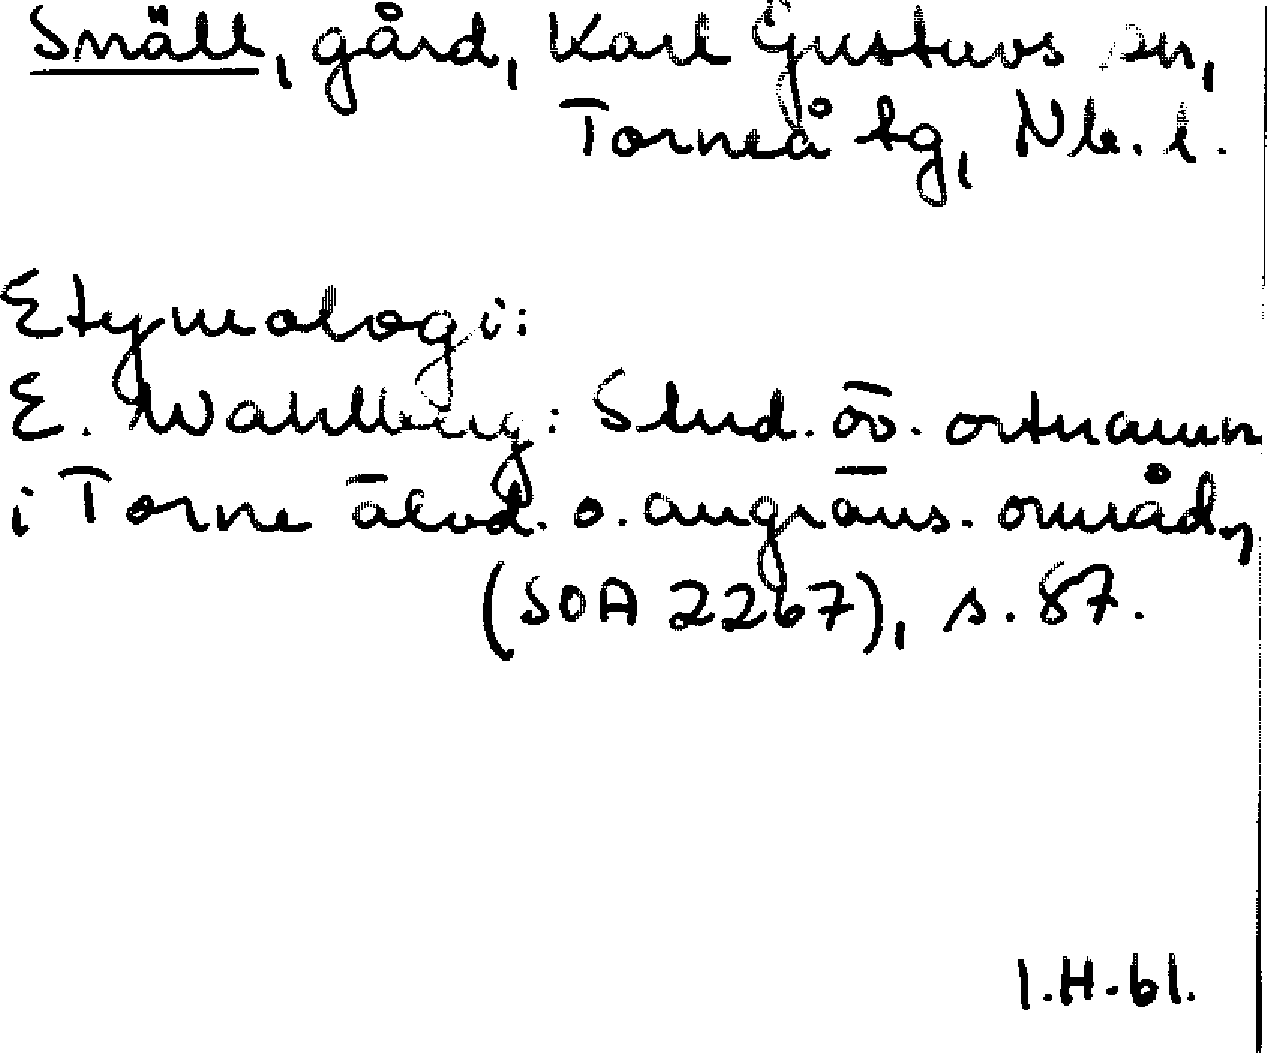 Snäll, gård, Karl Gustavs sn,
Torneå tg, Nb. l.
Etymologi:
E. Wahlberg: Stud. öv. ortnamn
i Torne älvd. o. angräns. områd,
(SOA 2267), s. 87.
I.H.61.